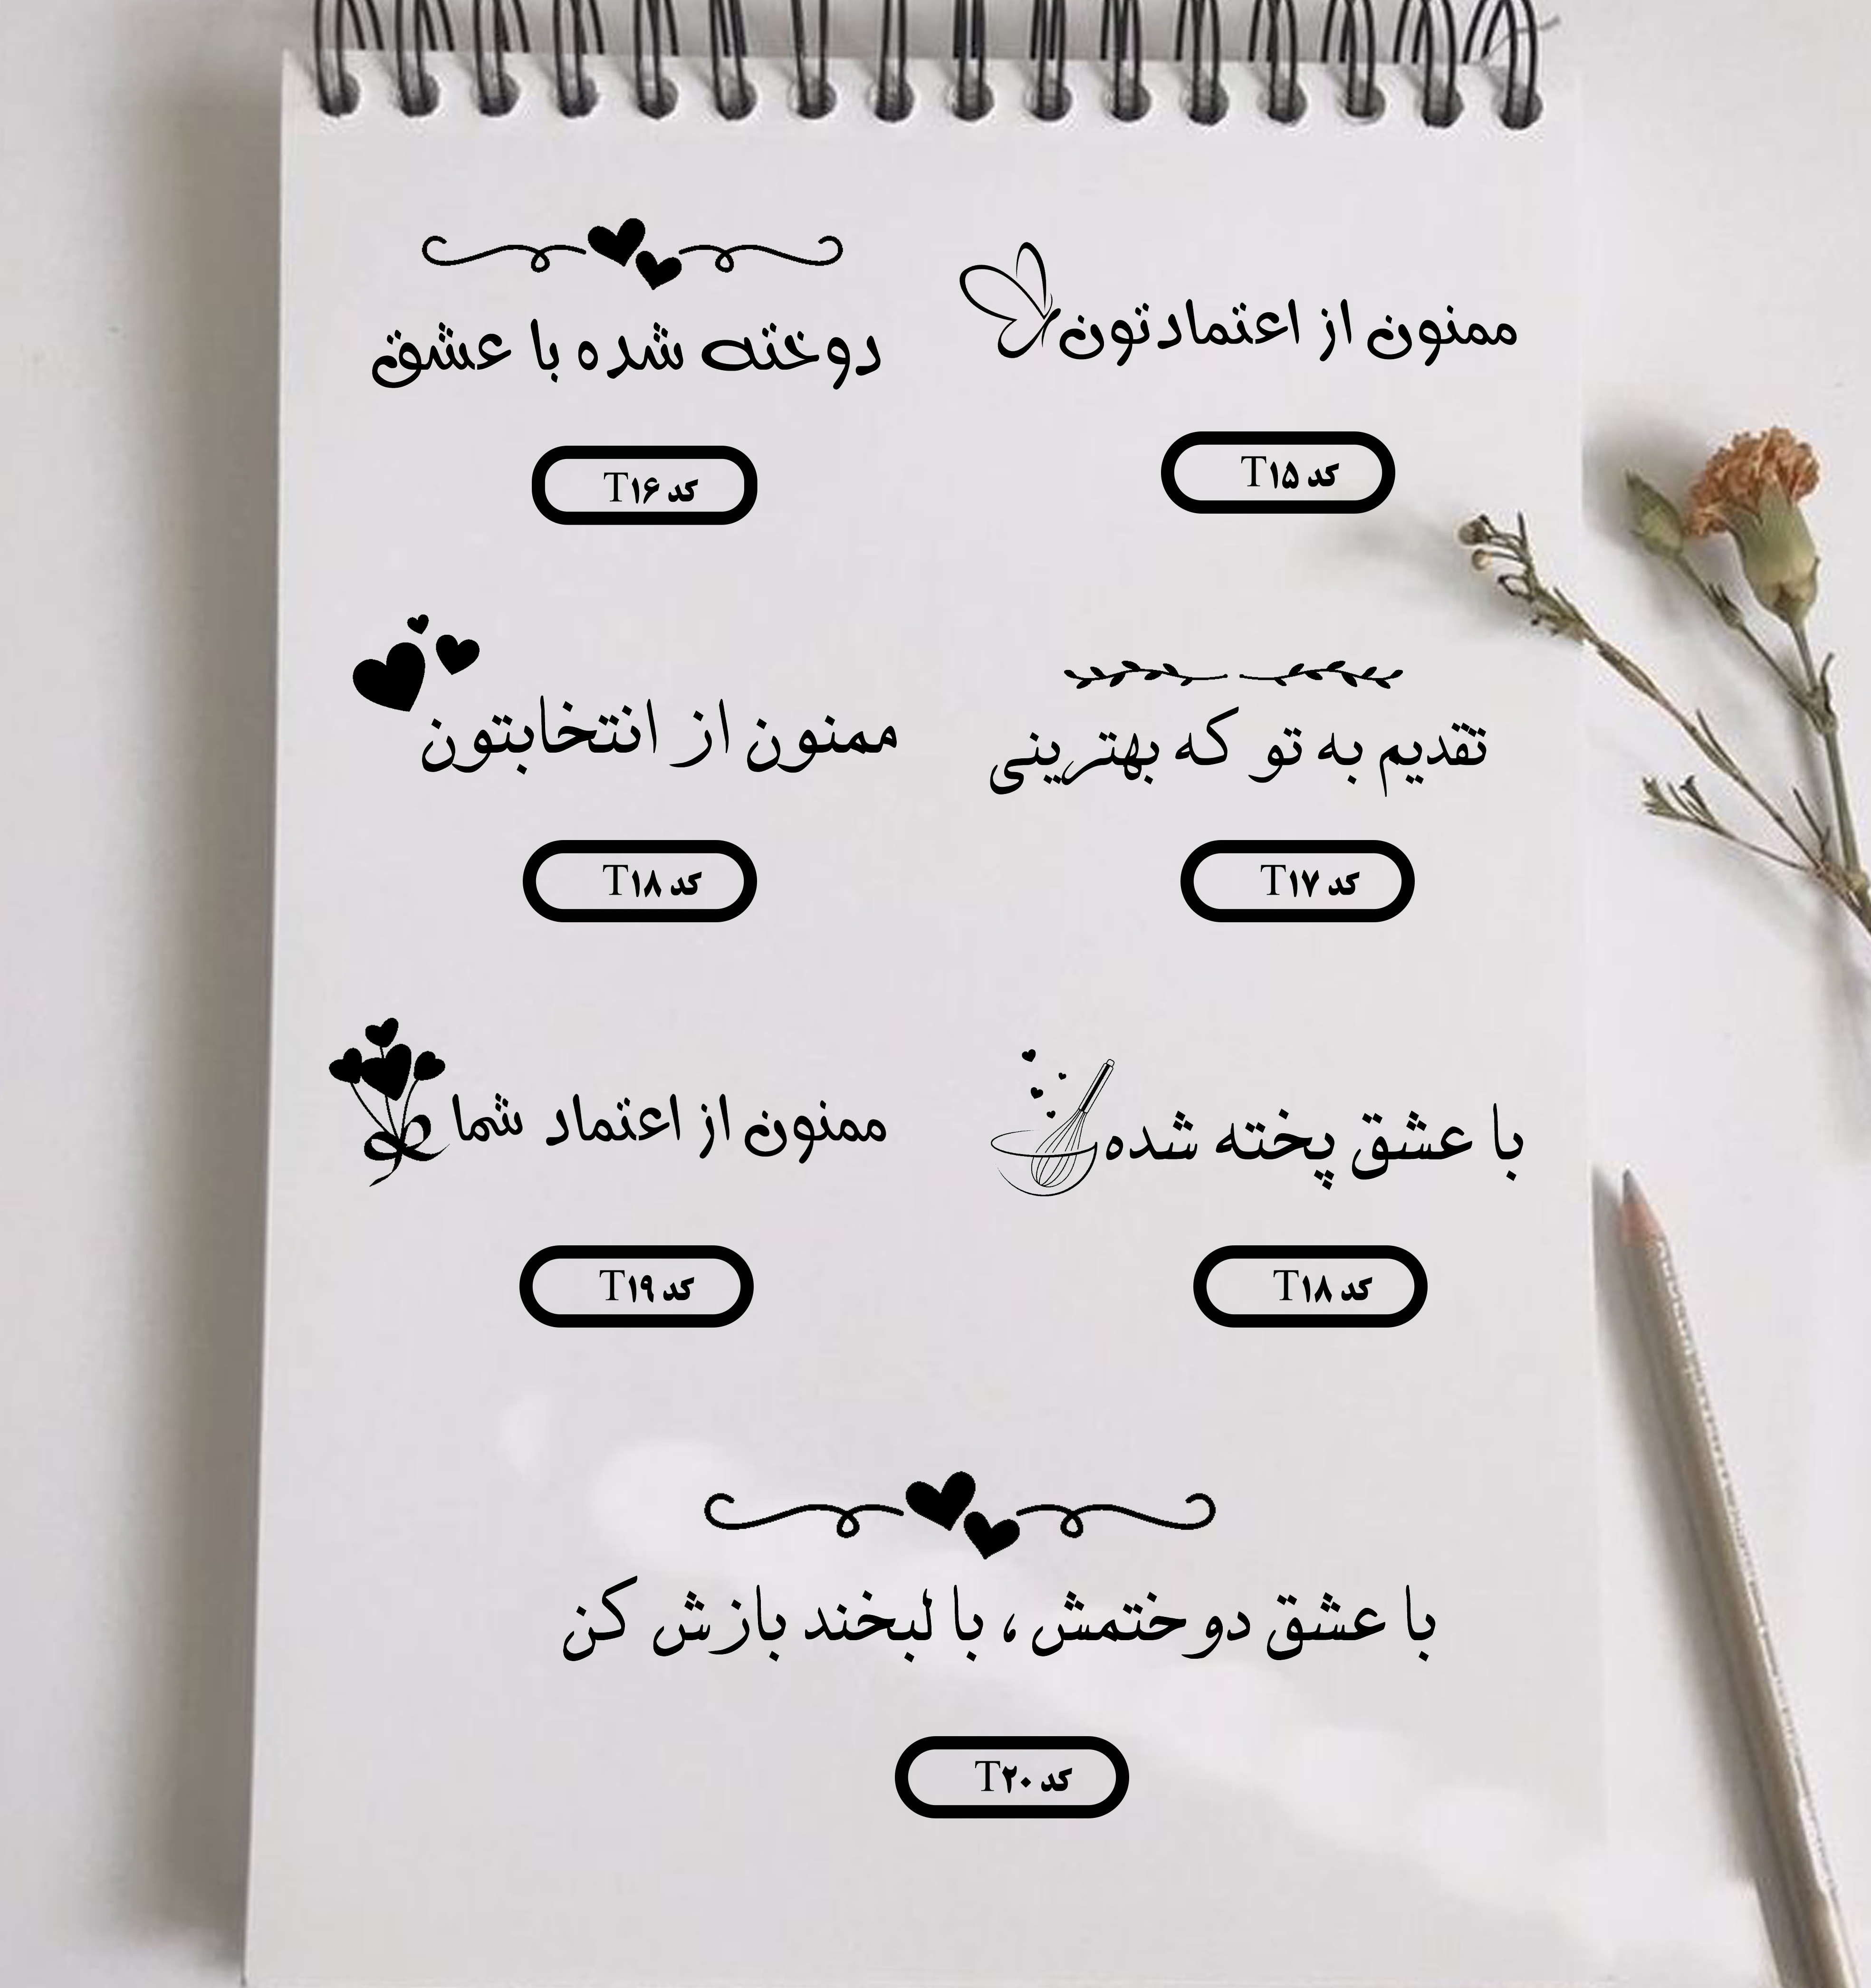 ممنون از اعتمادتون
کد T۱۵
دوخته شده با عشق
کد T۱۶
تقدیم به تو که بهترینی
کد T۱۷
ممنون از انتخابتون
کد T۱۸
با عشق پخته شده
کد T۱۸
ممنون از اعتماد شما
کد T۱۹
با عشق دوختمش ، با لبخند بازش کن
کد T۲۰